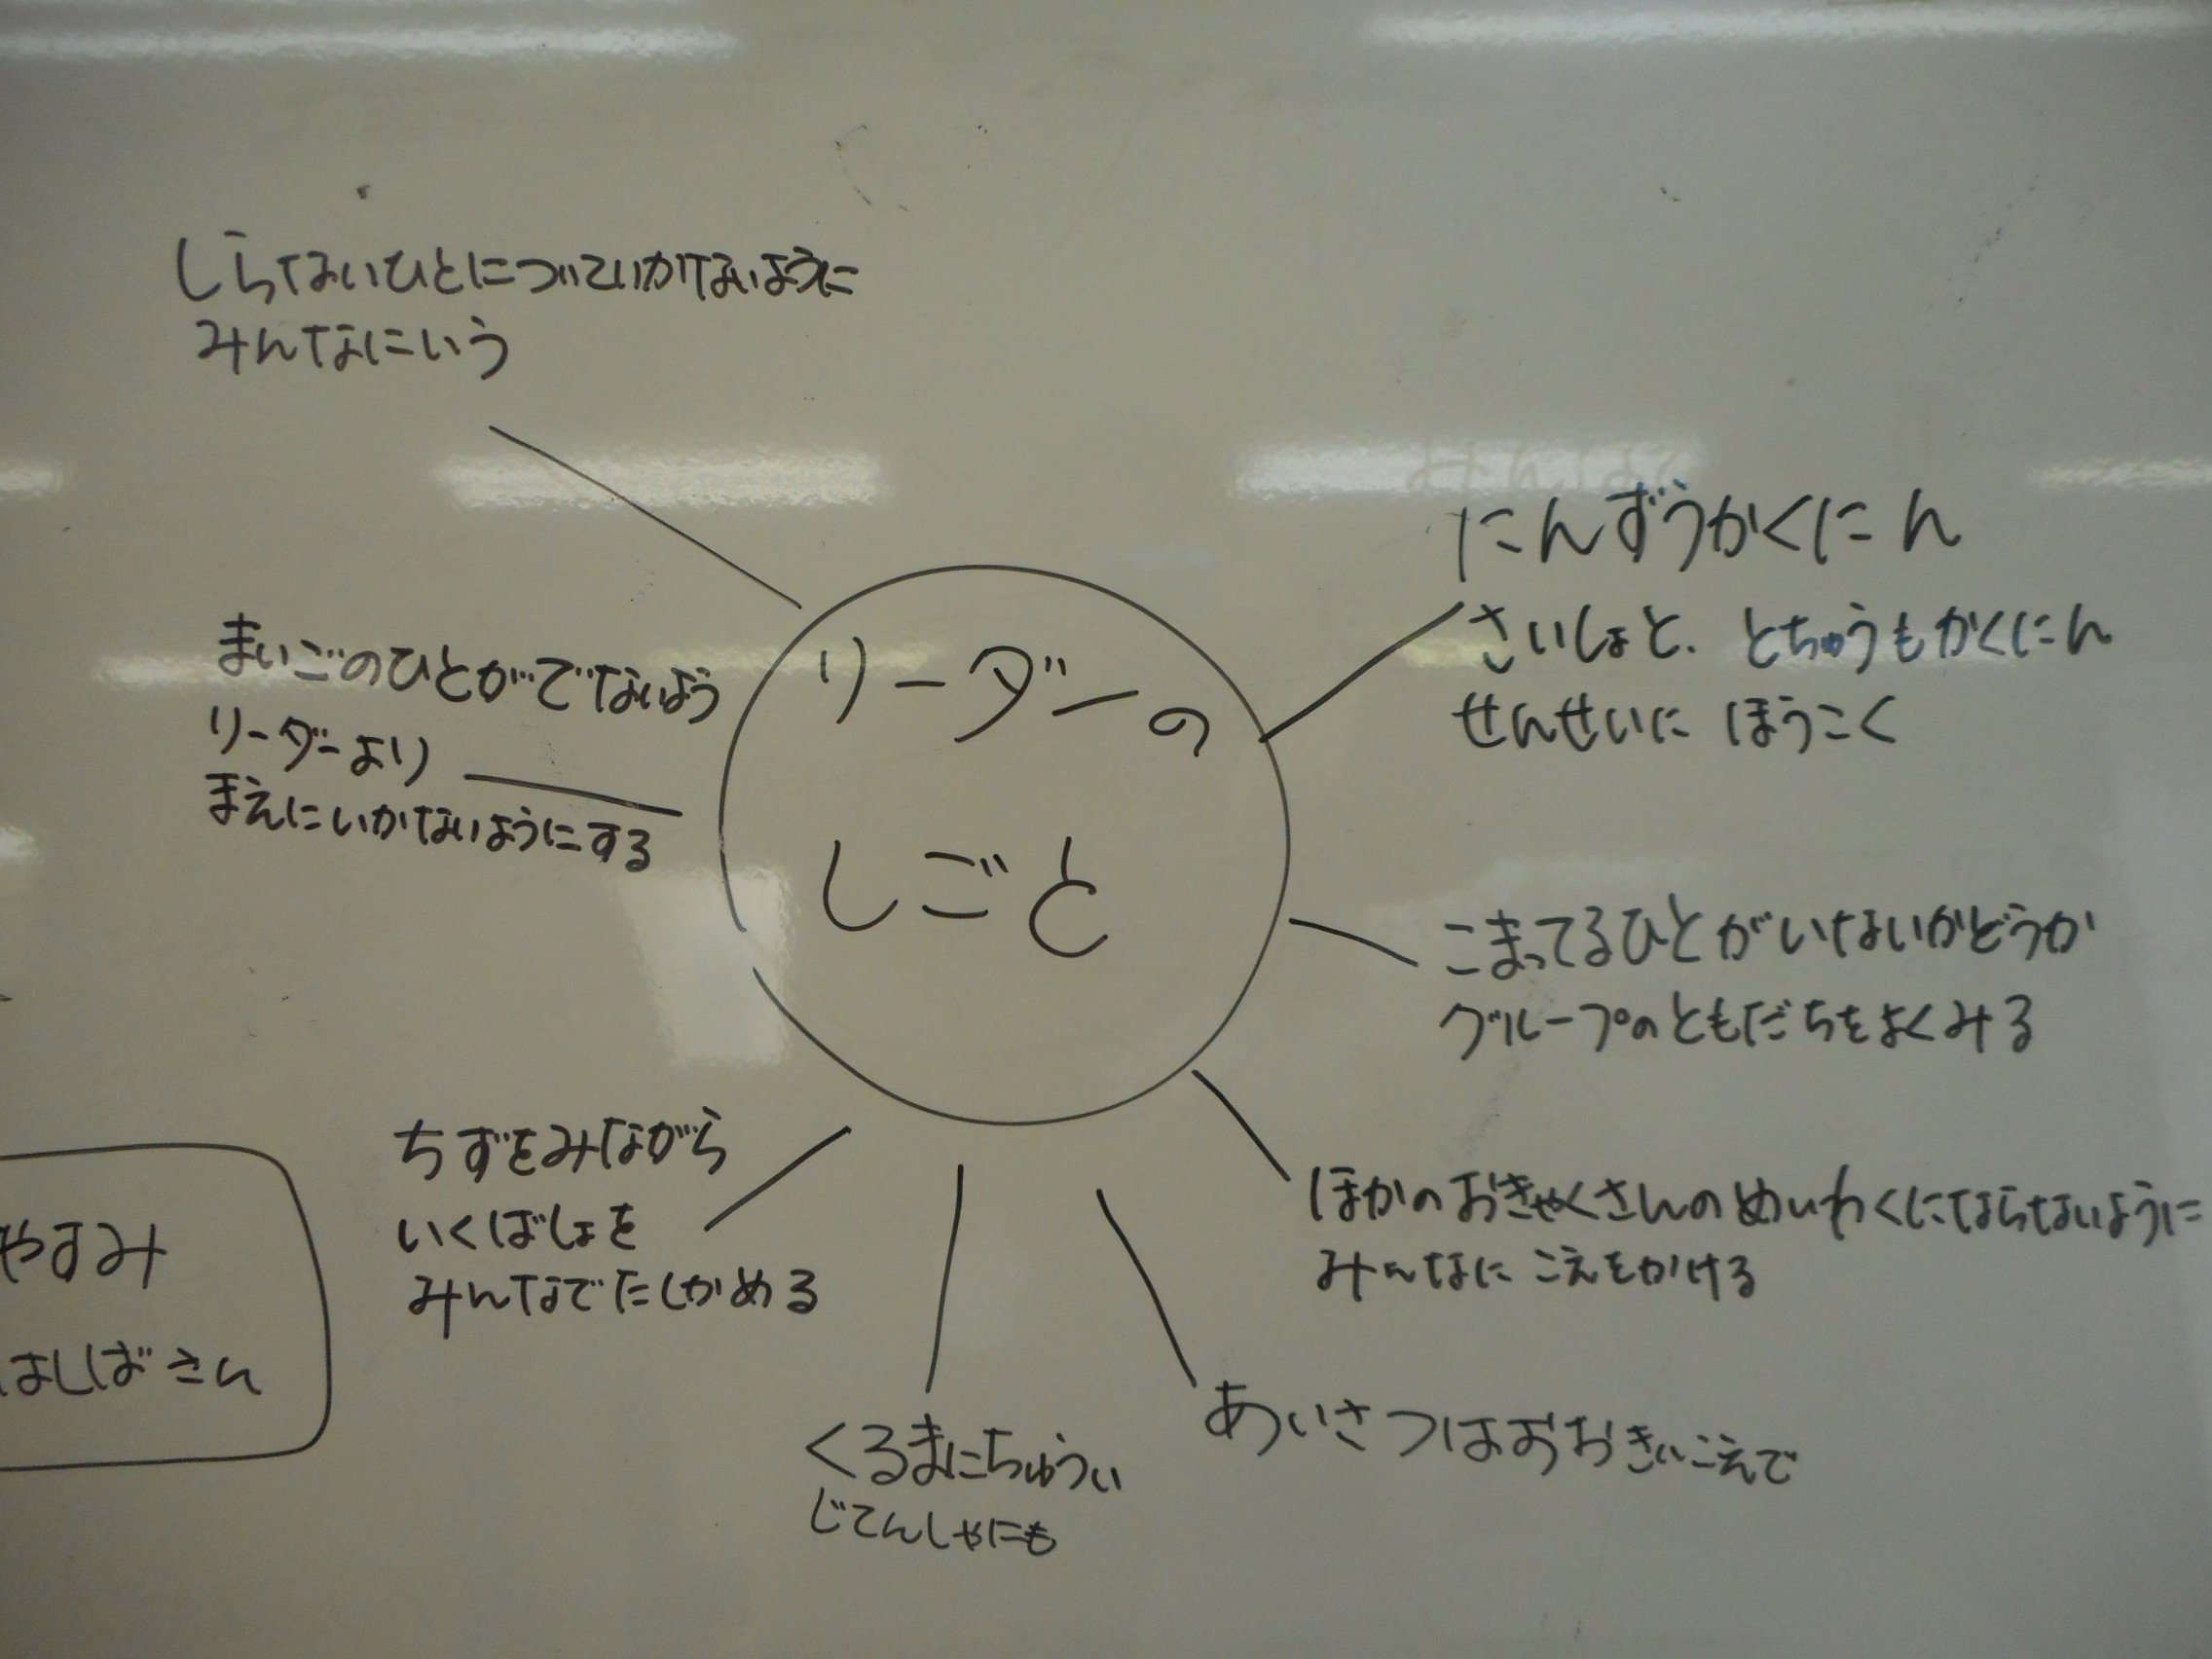 しらないひとについていかないように
みんなにいう
まいごのひとがでないよう
リーダーより
まえにいかないようにする
リーダーの
しごと
にんずうかくにん
さいしょと、とちゅうもかくにん
せんせいに ほうこく
こまってるひとがいないかどうか
グループのともだちをよくみる
ほかのおきゃくさんのめいわくにならないように
みんなに こえをかける
あいさつはおおきいこえで
くるまにちゅうい
じてんしゃにも
ちずをみながら
いくばしょを
みんなでたしかめる
やすみ
はしばさん